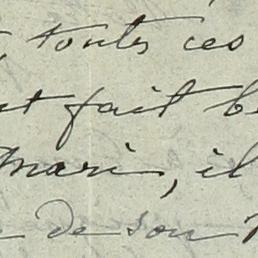 , toutes ces
fait
mari, il
de son